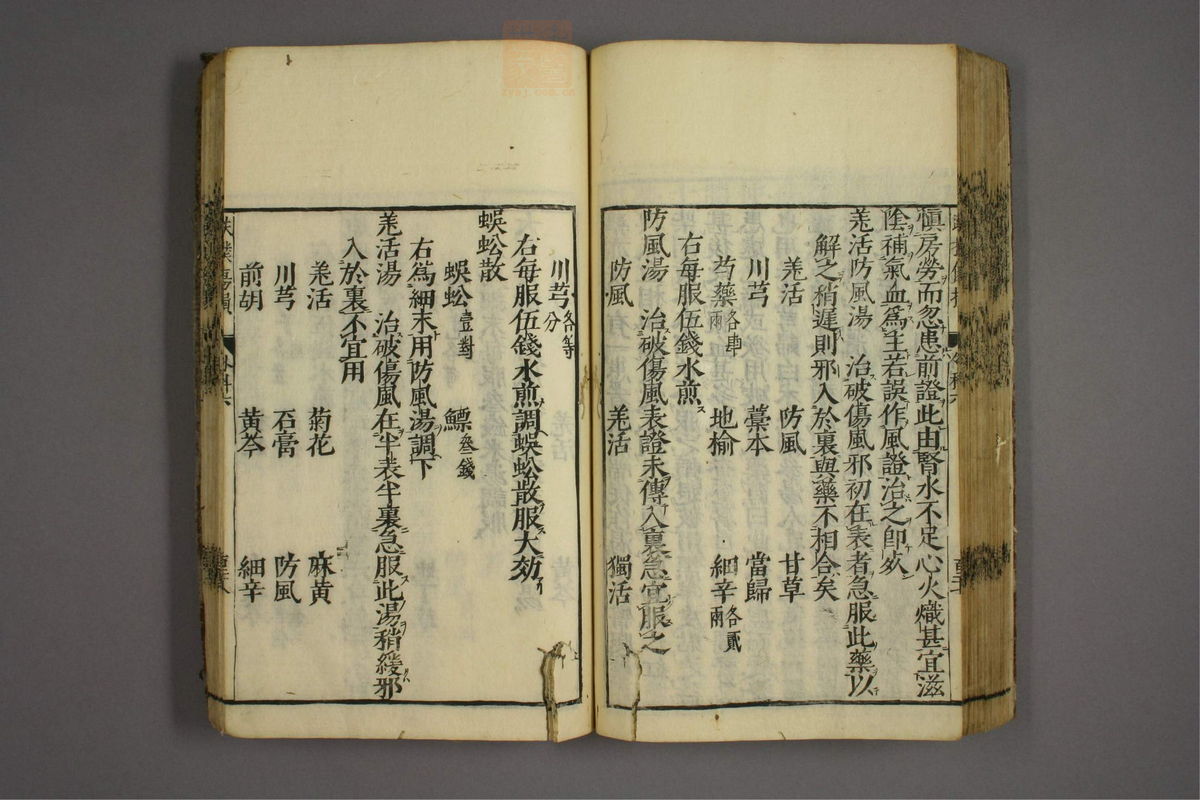 愼房勞而忽患前證此由腎水不足心火熾甚宜滋
陰補氣血爲主若誤作風證治之即㱐
羗活防風湯 治破傷風邪初在表者急服此藥以
解之稍遲則邪入於裏與藥不相合矣
羗活 防風 甘草
川芎 藁本 當歸
芍藥各肆兩 地榆 細辛各貳兩
右每服伍錢水煎
防風湯 治破傷風表證未傳入裏急宜服之
防風 羗活 獨活
川芎各等分
右每服伍錢水煎調蜈蚣散服大効
蜈蚣散
蜈蚣壹對 鰾叄錢
右爲細末用防風湯調下
羗活湯 治破傷風在半表半裏急服此湯稍緩邪
入於裏不宜用
羗活 菊花 麻黄
川芎 石膏 防風
前胡 黄芩 細辛